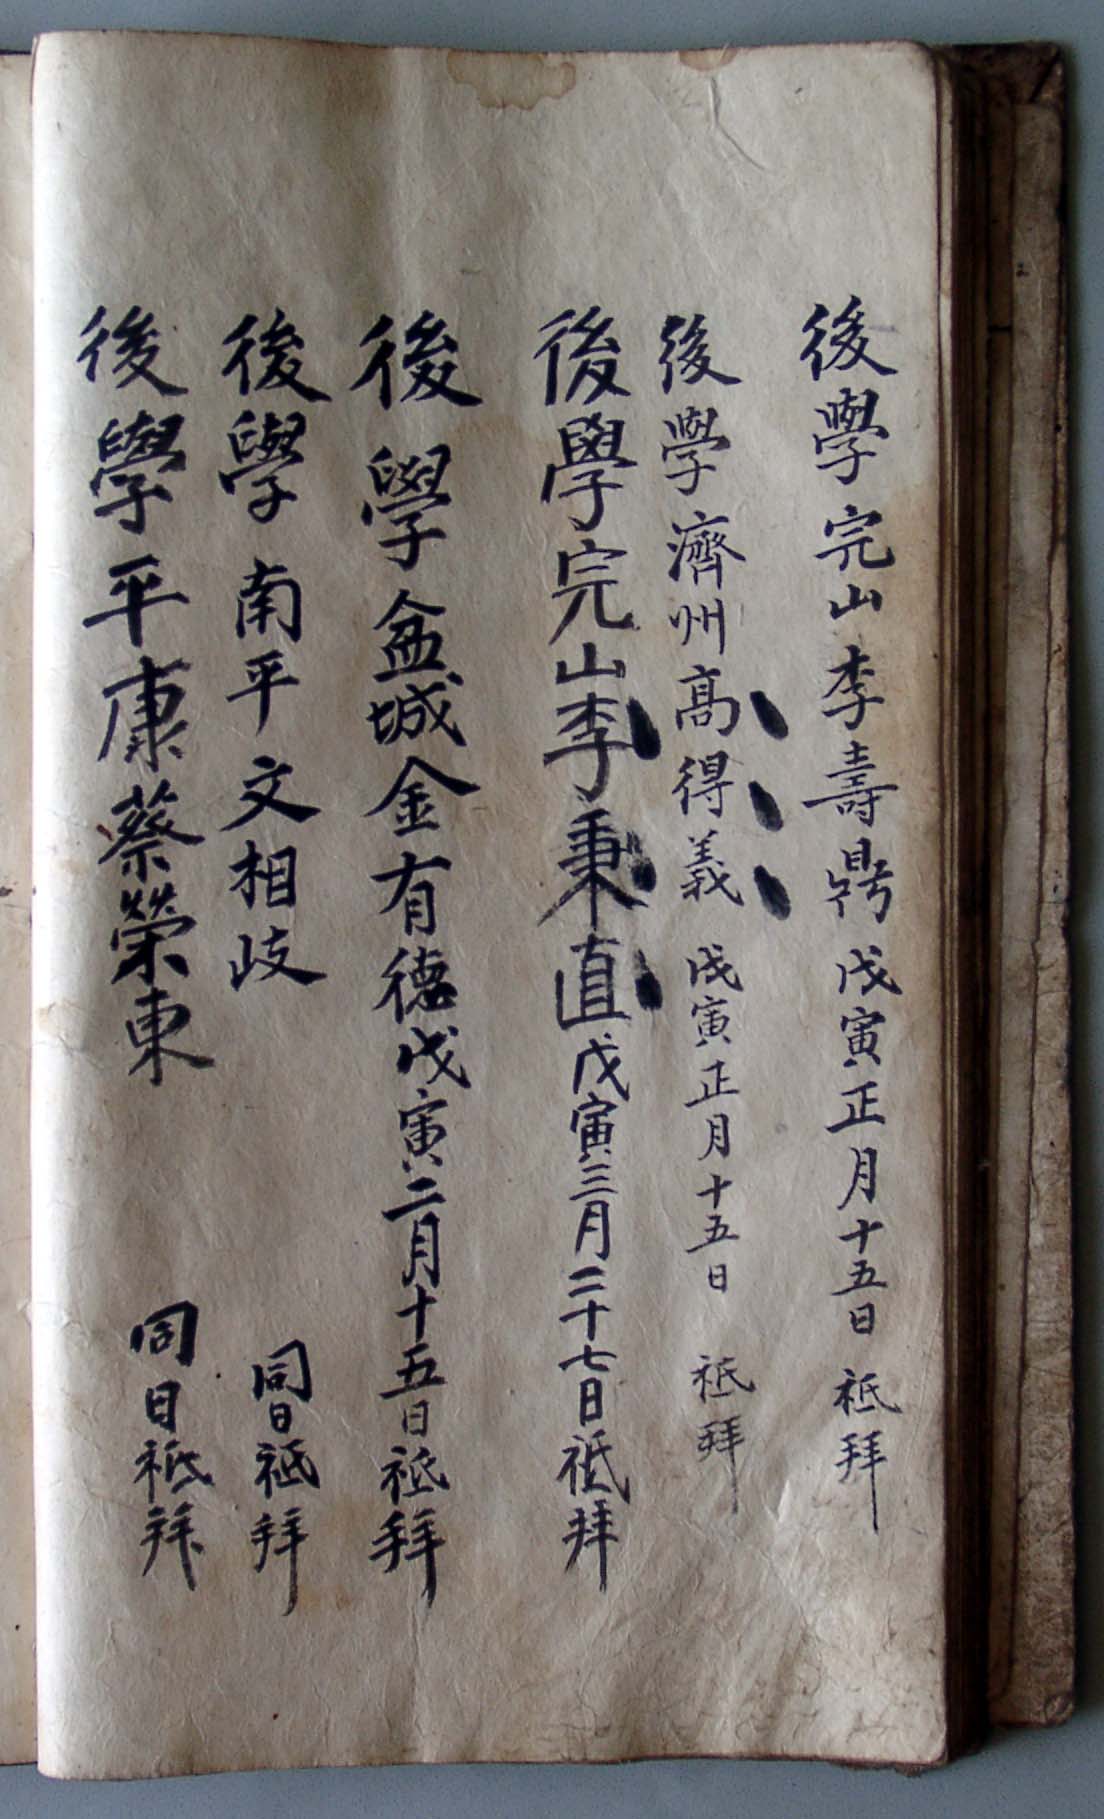 後學完山李壽鼎戊寅正月十五日祗拜
後學濟州高得義戊寅正月十五日祗拜
後學完山李秉直戊寅三月二十七日祗拜
後學盆城金有德戊寅二月十五日祗拜
後學南平文相岐同日祗拜
後學平康蔡榮東同日祗拜